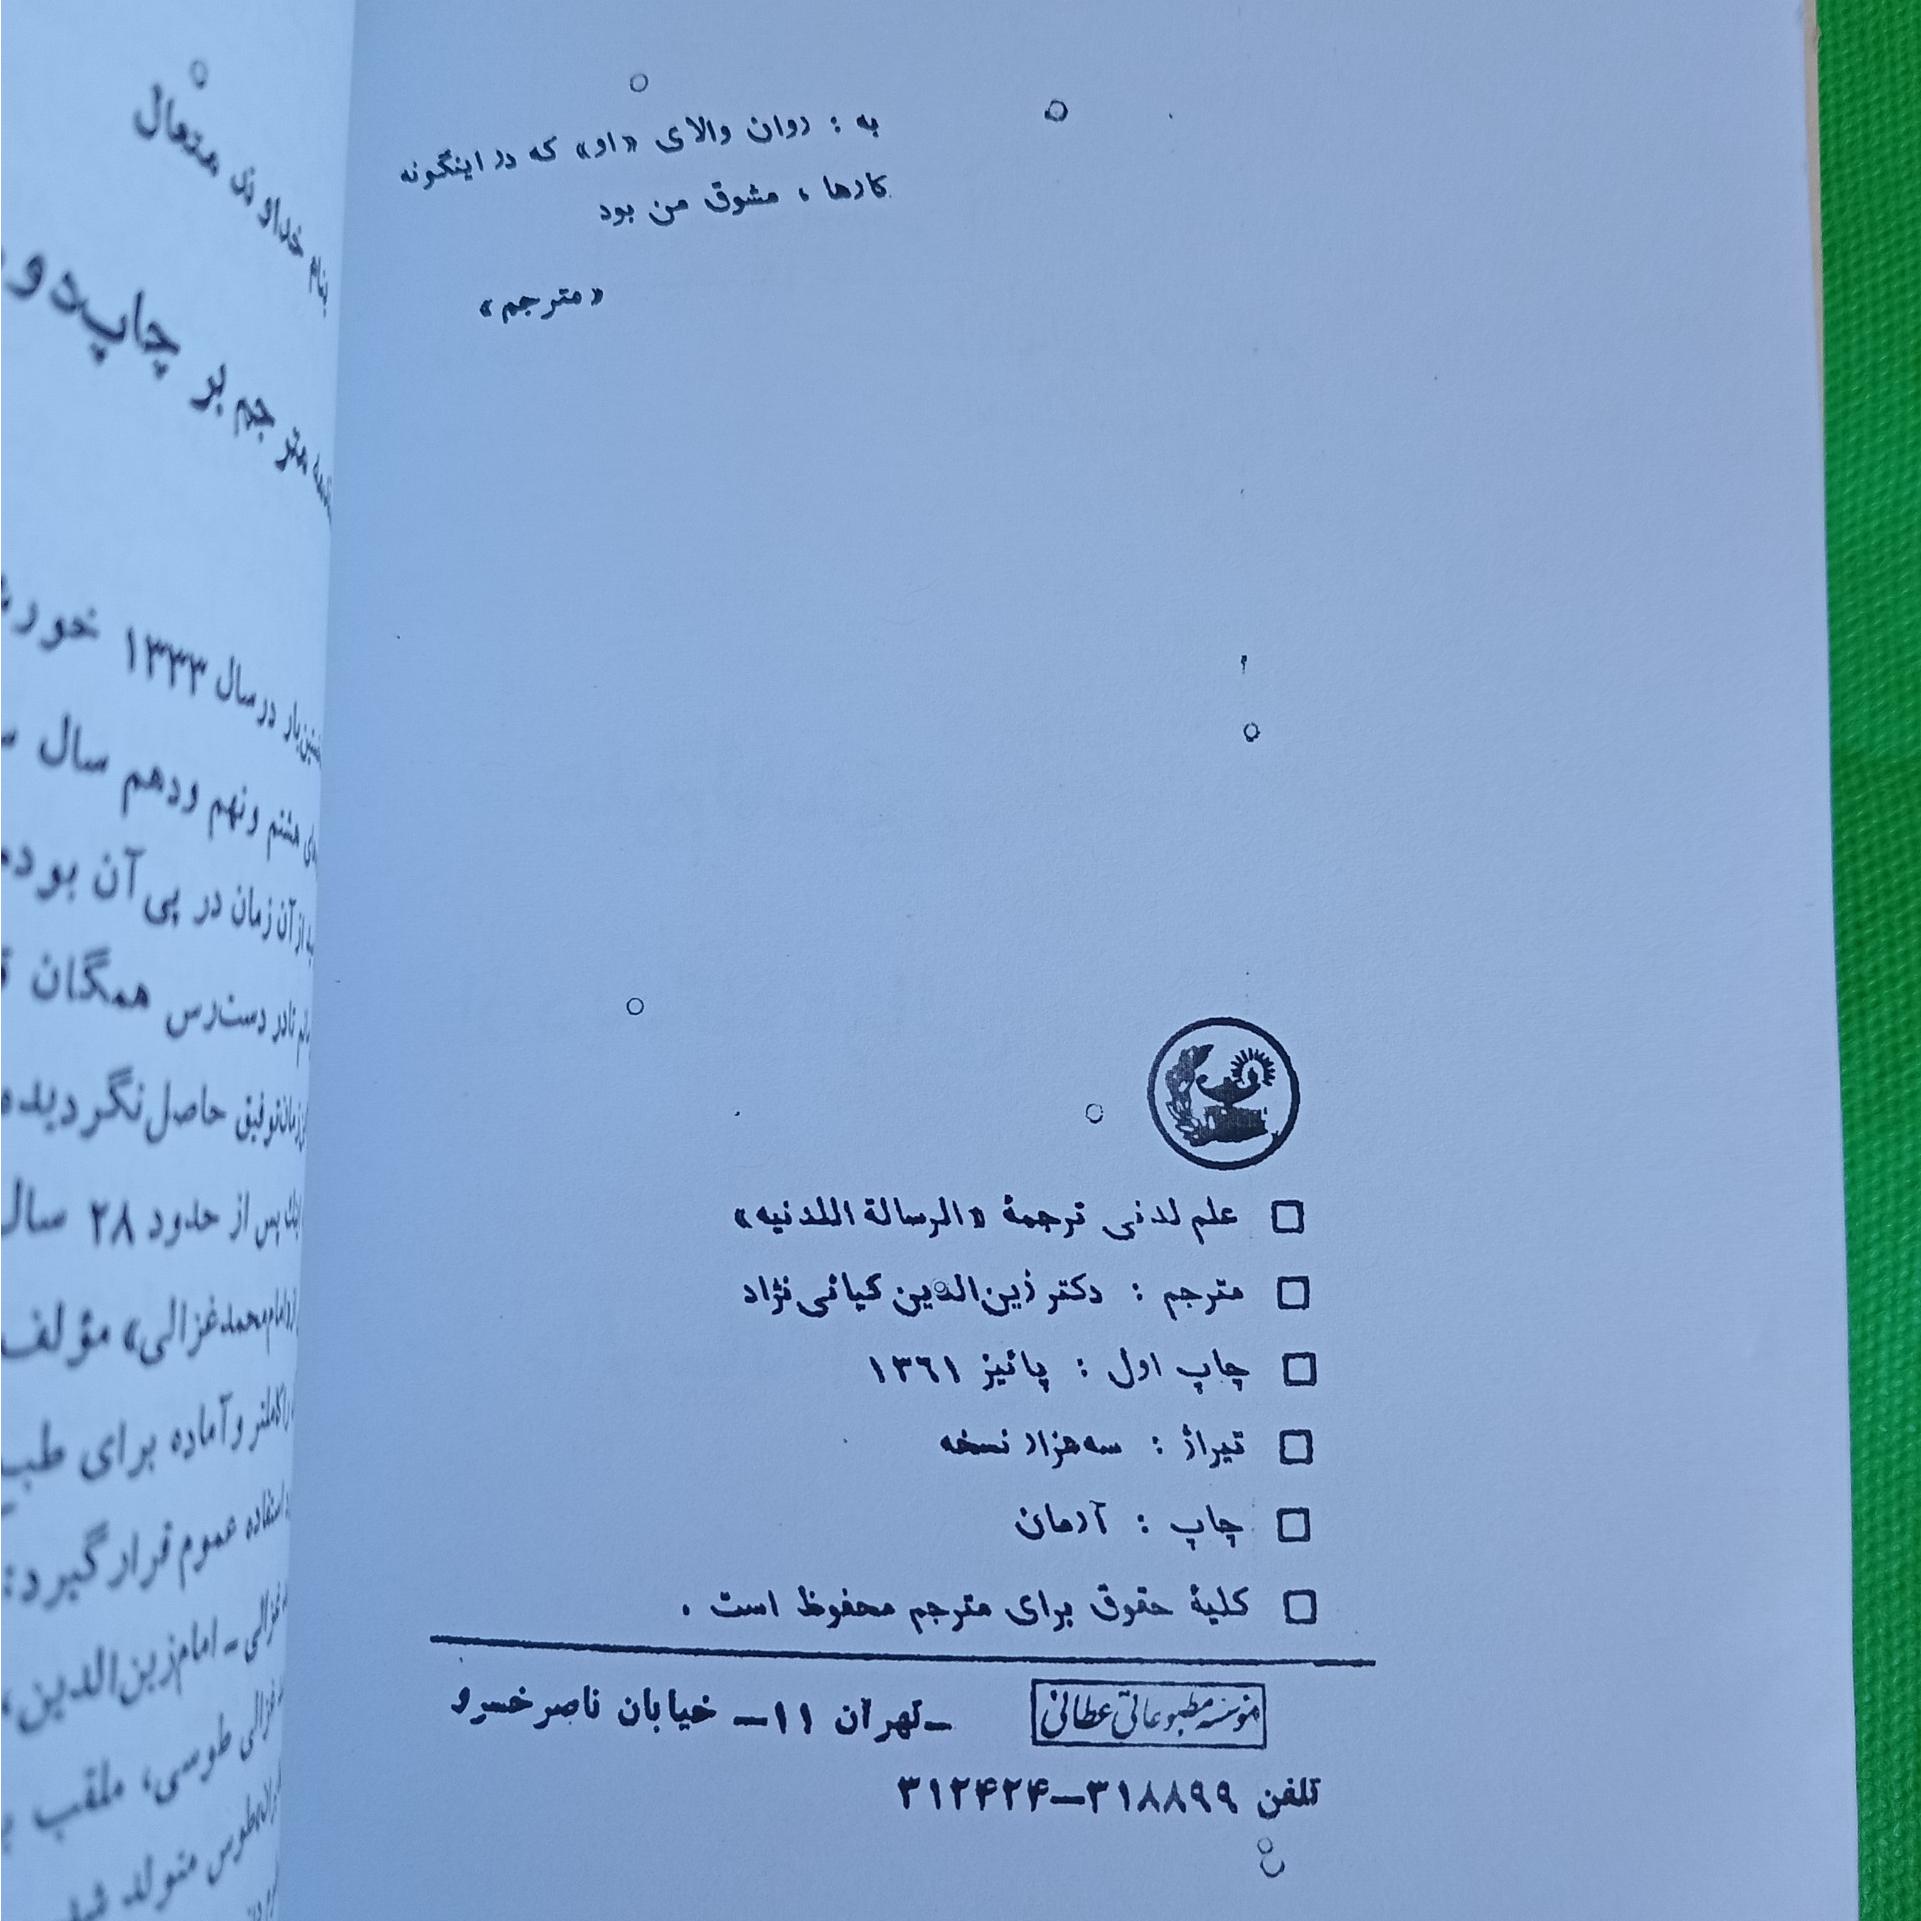 به : روان والای «او» که در اینگونه
کارها ، مشوق من بود
«مترجم»
علم لدنی ترجمهٔ «الرسالة اللدنیه»
مترجم : دکتر زین‌الدین کیائی‌نژاد
چاپ اول : پائیز ۱۳۶۱
تیراژ : سه‌هزار نسخه
چاپ : آرمان
کلیهٔ حقوق برای مترجم محفوظ است .
مؤسسه مطبوعاتی عطائی –تهران ۱۱– خیابان ناصرخسرو
تلفن ۳۱۸۸۹۹–۳۱۲۴۲۴
بنام خداوند متعال
مترجم بر چاپ
در سال ۱۳۳۳
هشتم و نهم و دهم سال
از آن زمان در پی آن
نادر دست‌رس همگان
توفیق حاصل نگردیده
پس از حدود ۲۸ سال
امام محمد غزالی» مؤلف
و آماده برای
استفاده عموم قرار گیرد:
غزالی – امام زین‌الدین،
غزالی طوسی، ملقب
طوس متولد